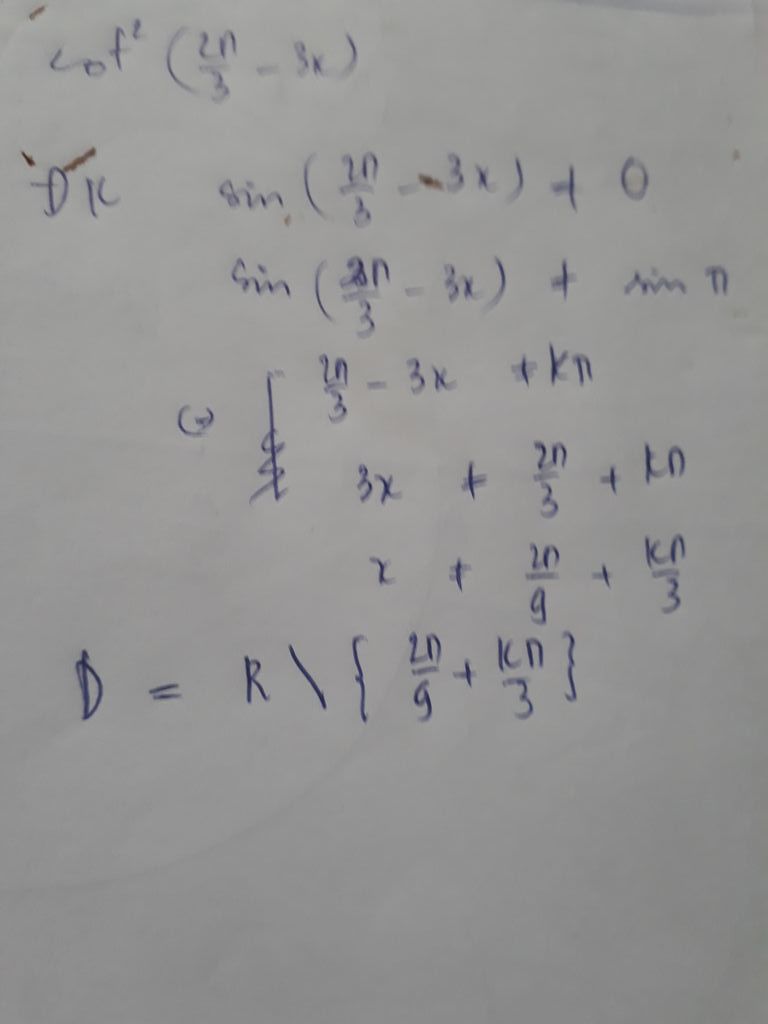 cot² (2π/3 - 3x)
ĐK sin (2π/3 - 3x) ≠ 0
sin (2π/3 - 3x) ≠ sin π
⇔ 2π/3 - 3x ≠ kπ
3x ≠ 2π/3 + kπ
x ≠ 2π/9 + kπ/3
D = R \ { 2π/9 + kπ/3 }